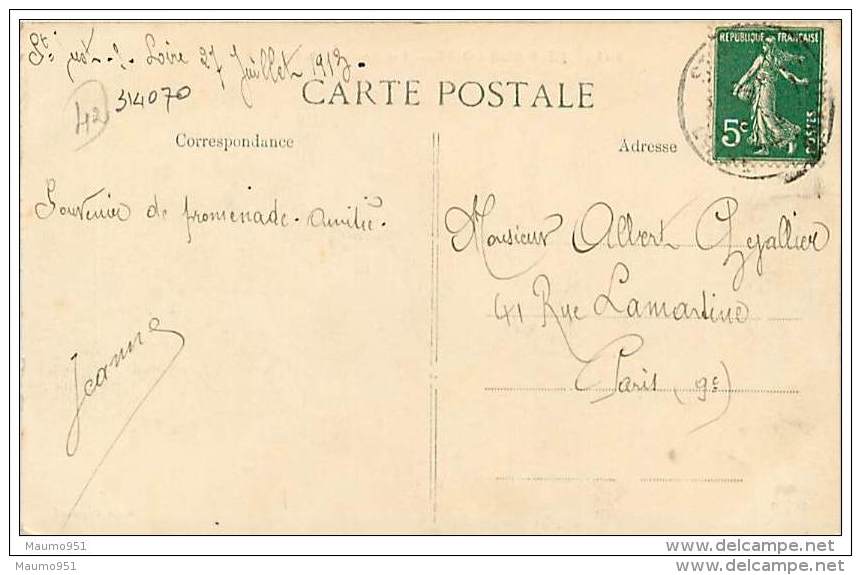 St Just-s. Loire 27 Juillet 1913.
42
314070
CARTE POSTALE
Correspondance
Adresse
RÉPUBLIQUE FRANÇAISE
5c
POSTES
Souvenir de promenade. Amitié.
Jeanne
Monsieur Albert
41 Rue Lamartine
Paris (9e)
Maumo951
Maumo951
www.delcampe.net
www.delcampe.net